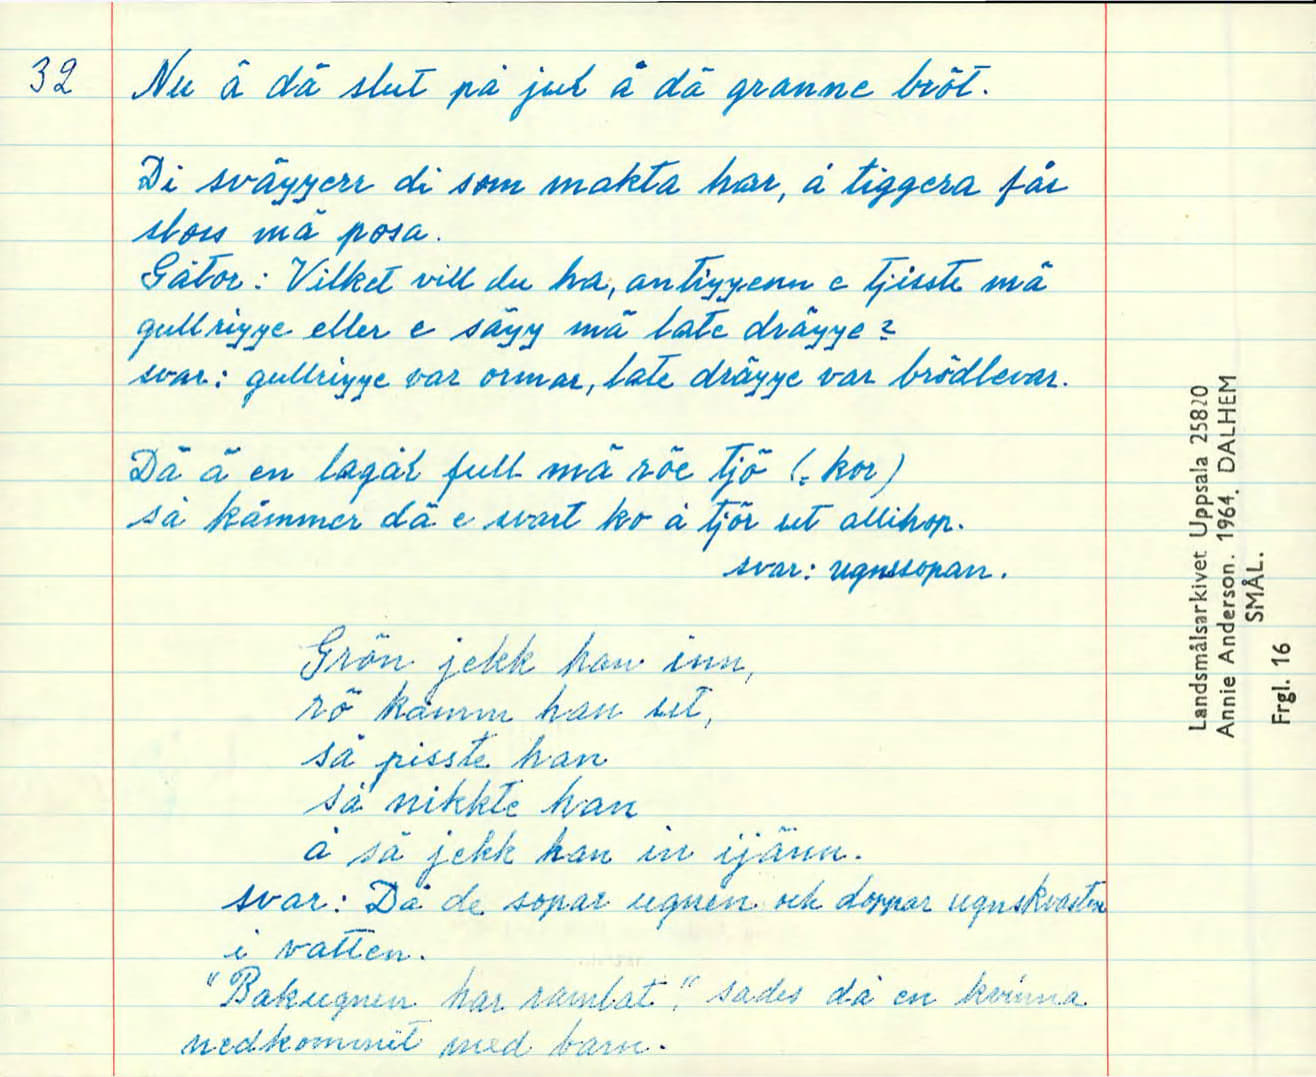 32 Nu ä dä slut på jul å dä granne bröt.
Di sväŋŋerr di som makta har, å tiggera får
sloss mä posa.
Gåtor: Vilket vill du ha, antiŋŋenn e tjisste mä
gullriŋŋe eller e säŋŋ mä late dräŋŋe?
svar: gullriŋŋe var ormar, late dräŋŋe var brödlevar.
Dä ä en lagål full mä röe tjö (= kor)
så kåmmer dä e svart ko å tjör ut allihop.
svar: ugnssopan.
Grön jekk han inn,
rö kåmm han ut,
så pisste han
så nikkte han
å så jekk han in ijänn.
svar: Då de sopar ugnen och doppar ugnskvasten
i vatten.
"Bakugnen har ramlat", sades då en kvinna
nedkommit med barn.
Landsmålsarkivet Uppsala 25820
Annie Anderson. 1964. DALHEM
SMÅL.
Frgl. 16